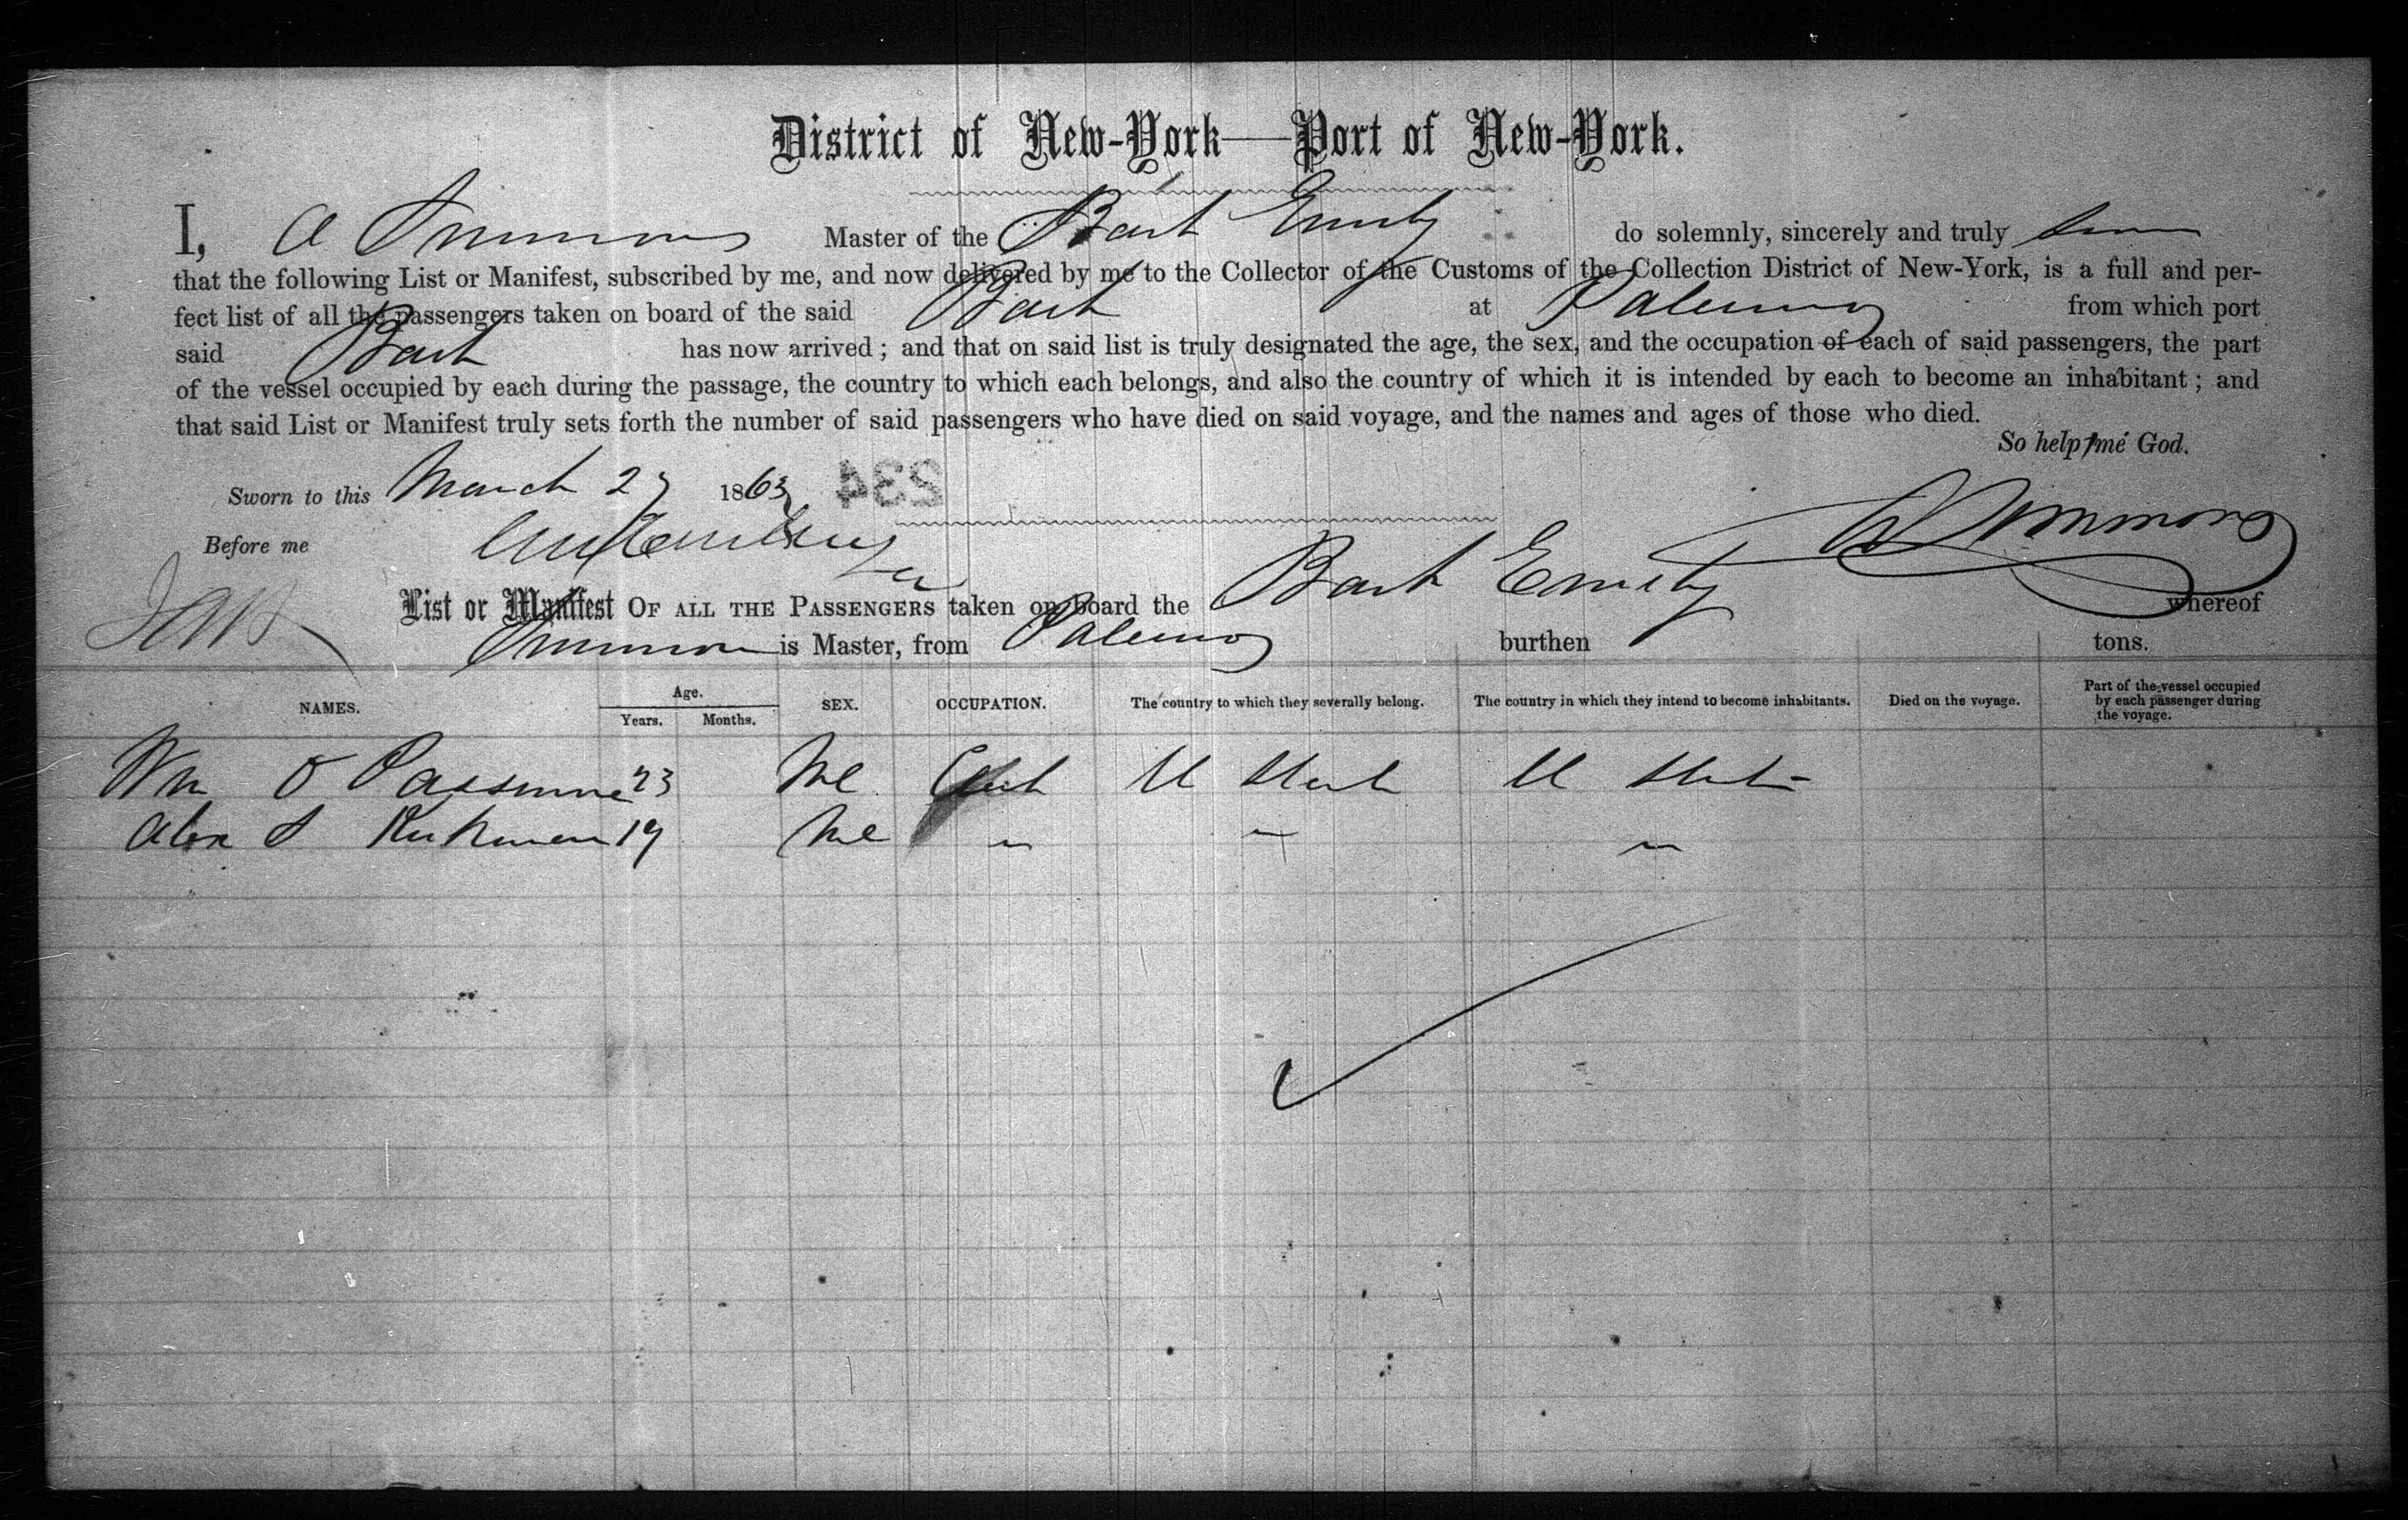 District of New-York—Port of New-York.
I, A Simmons Master of the Bark Emily do solemnly, sincerely and truly swear
that the following List or Manifest, subscribed by me, and now delivered by me to the Collector of the Customs of the Collection District of New-York, is a full and per-
fect list of all the passengers taken on board of the said Bark at Palermo from which port
said Bark has now arrived ; and that on said list is truly designated the age, the sex, and the occupation of each of said passengers, the part
of the vessel occupied by each during the passage, the country to which each belongs, and also the country of which it is intended by each to become an inhabitant ; and
that said List or Manifest truly sets forth the number of said passengers who have died on said voyage, and the names and ages of those who died.
So help me God.
Sworn to this March 27 1863 234
Before me
A Simmons
List or Manifest OF ALL THE PASSENGERS taken on board the Bark Emily whereof
Simmons is Master, from Palermo burthen tons.
NAMES. Age. Years. Months. SEX. OCCUPATION. The country to which they severally belong. The country in which they intend to become inhabitants. Died on the voyage. Part of the vessel occupied by each passenger during the voyage.
Wm O 23 Ml Clerk U State U State
Alex S 19 Ml " " "